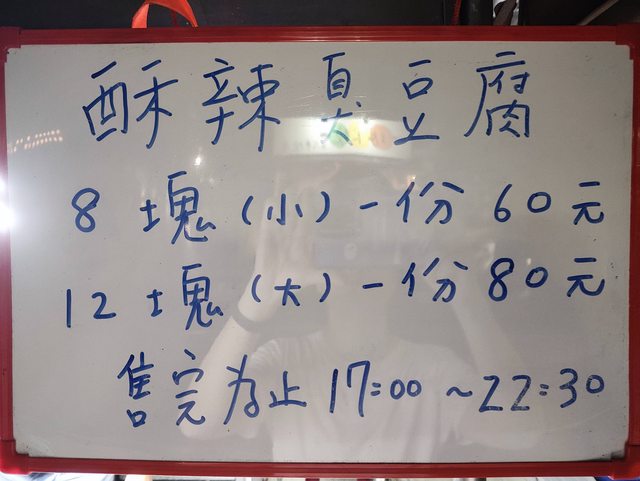 酥辣臭豆腐
8 塊(小)一份 60元
12 塊(大)一份 80元
售完為止 17:00 ~ 22:30